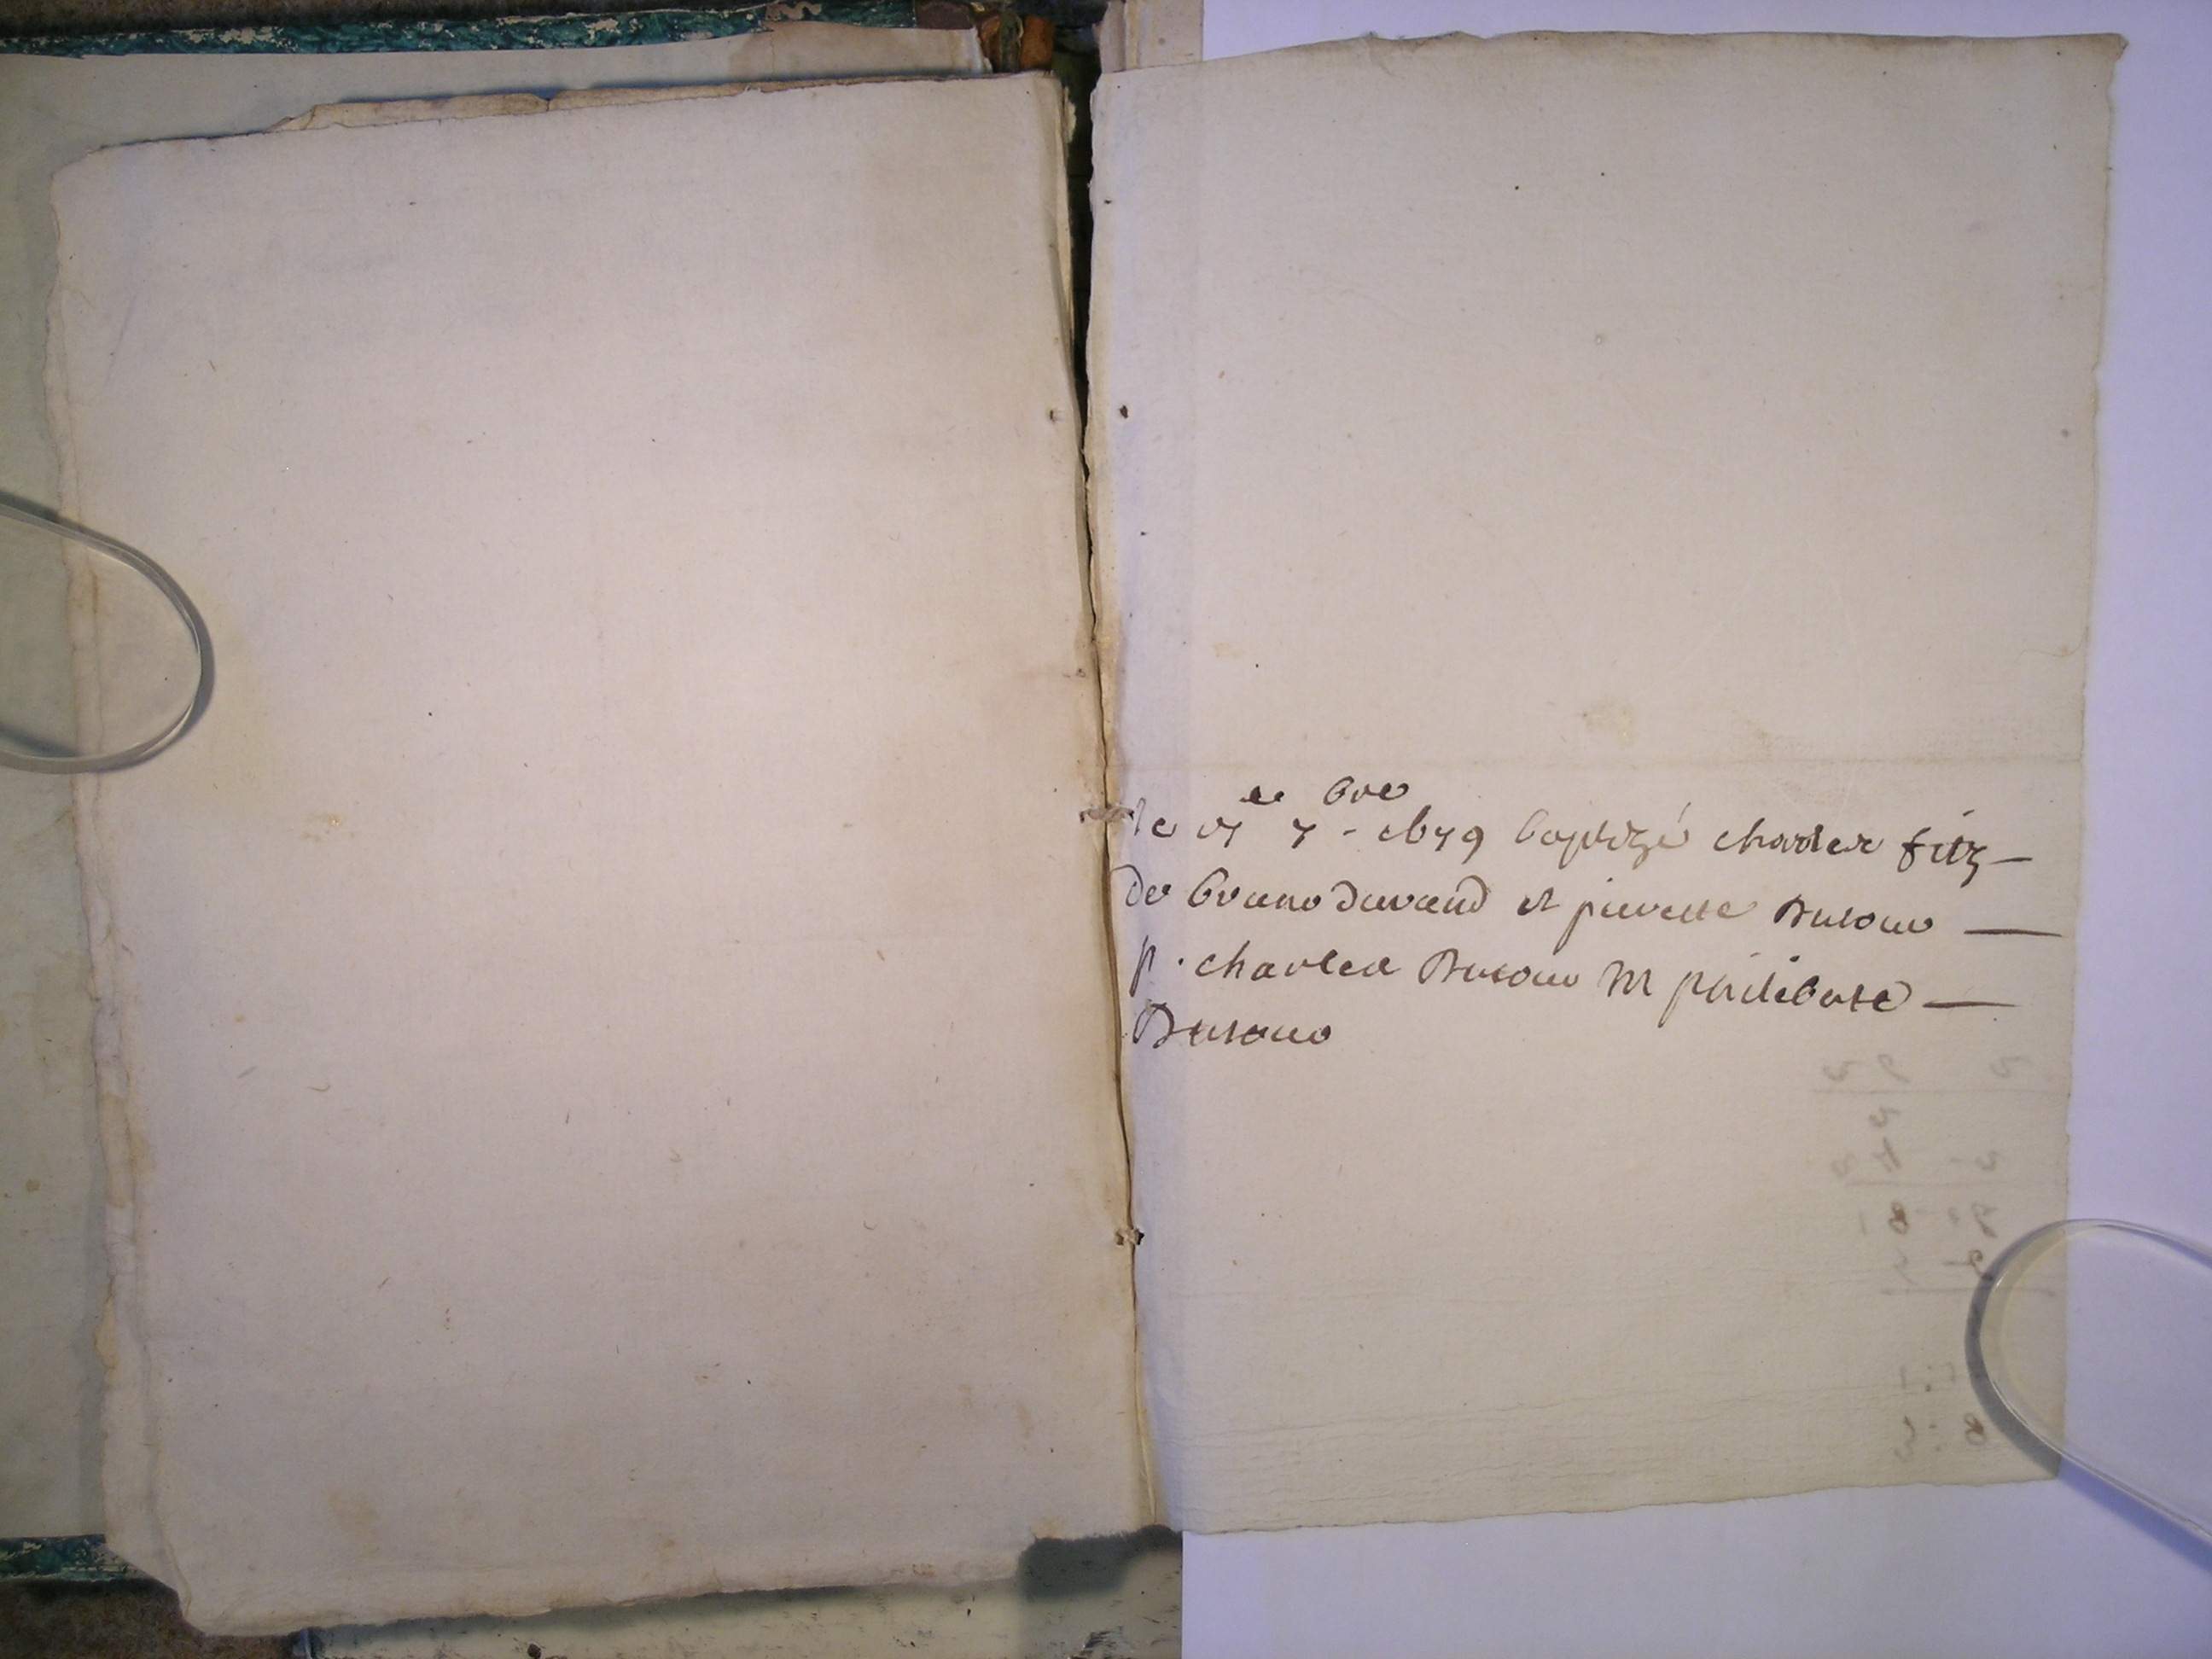 le 7bre 1679 baptizé charles fitz
de bruno durand et pierette Buson
p. charles Buson M philiberte
Buson